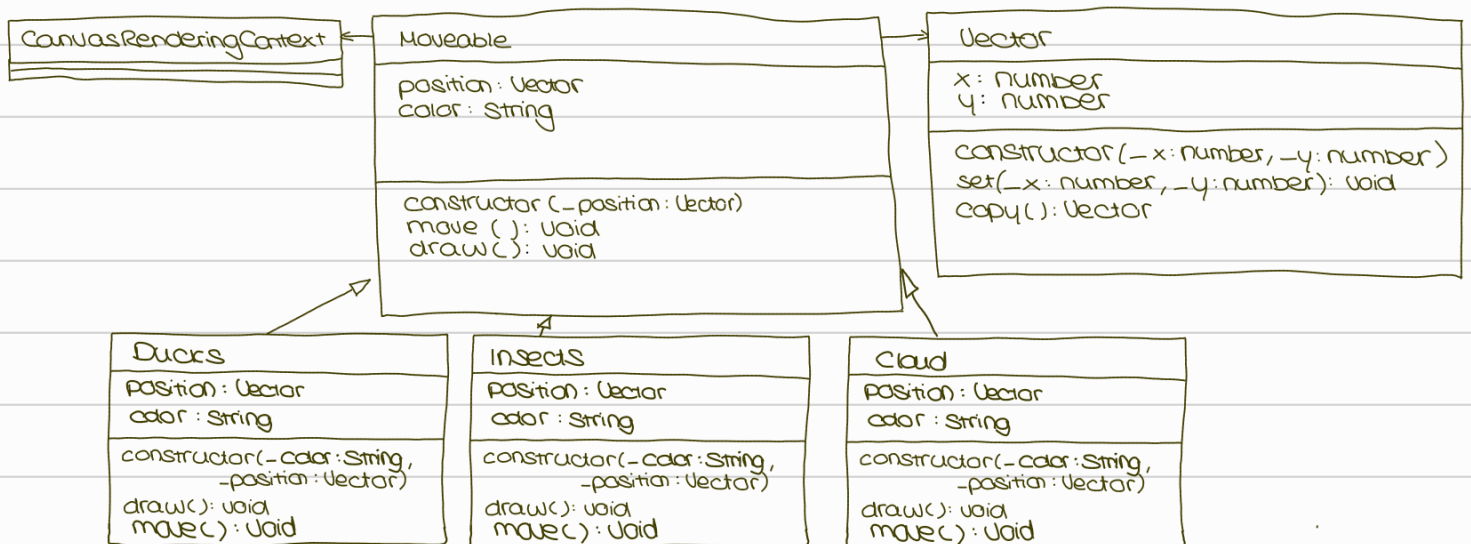 CanvasRenderingContext
Moveable
position: Vector
color: String
constructor (_position: Vector)
move (): void
draw(): void
Vector
x: number
y: number
constructor(_x:number, _y:number)
set(_x: number, _y:number): void
copy(): Vector
Ducks
position: Vector
color: String
constructor(_color:String,
_position: Vector)
draw(): void
move(): void
Insects
position: Vector
color: String
constructor(_color:String,
_position: Vector)
draw(): void
move(): void
Cloud
position: Vector
color: String
constructor(_color:String,
_position: Vector)
draw(): void
move(): void